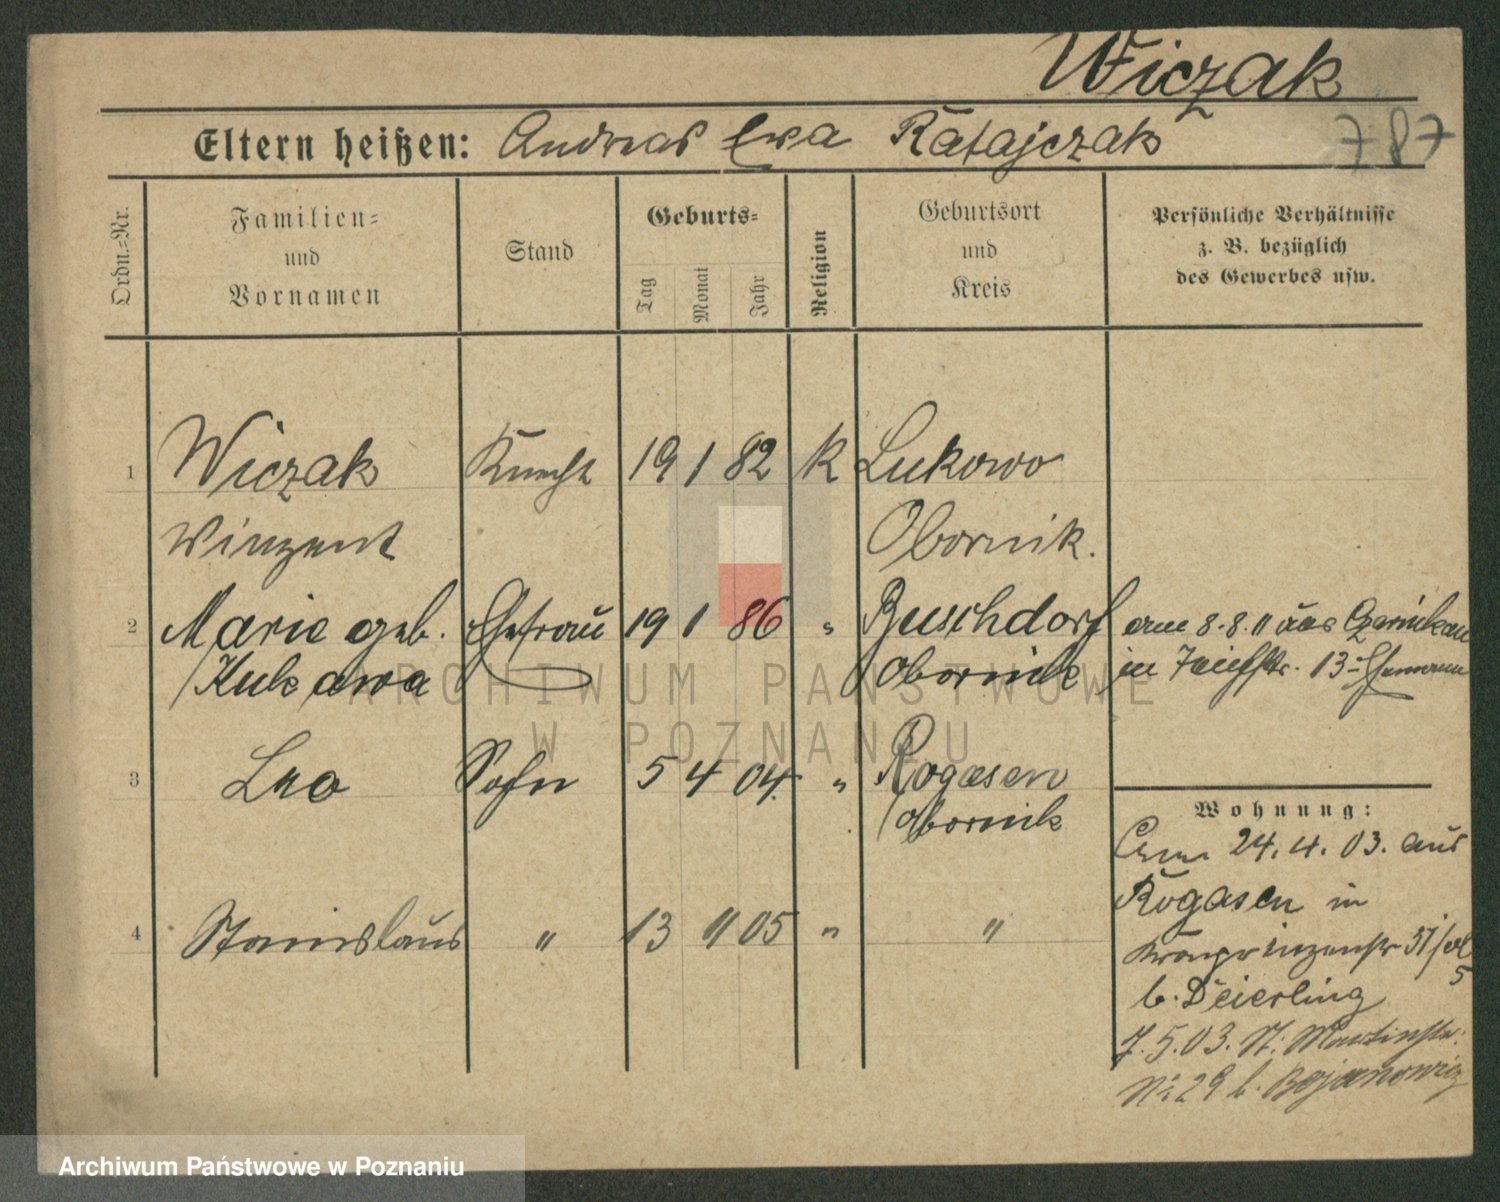 Wiczak
Eltern heißen: Andreas Eva Ratajczak
787
Ordn.=Nr.
Familien=
und
Vornamen
Stand
Geburts=
Tag
Monat
Jahr
Religion
Geburtsort
und
Kreis
Persönliche Verhältnisse
z. B. bezüglich
des Gewerbes usw.
1 Wiczak Knecht 19 1 82 K Lukowo
Winzent Obornik.
2 Marie geb. Ehefrau 19 1 86 " Buschdorf am 8.8.11 aus Czarnikau
Kukawa Obornik in 13 Ehemann
3 Leo Sohn 5 4 04. " Rogasen
Obornik
4 Stanislaus " 13 11 05 " "
Wohnung:
24.4.03. aus
Rogasen in
Kronprinzenstr 31/
5
b. Deierling
7.5.03. St. Martinstr.
No 29 b. Bojanowicz
ARCHIWUM PAŃSTWOWE
W POZNANIU
Archiwum Państwowe w Poznaniu